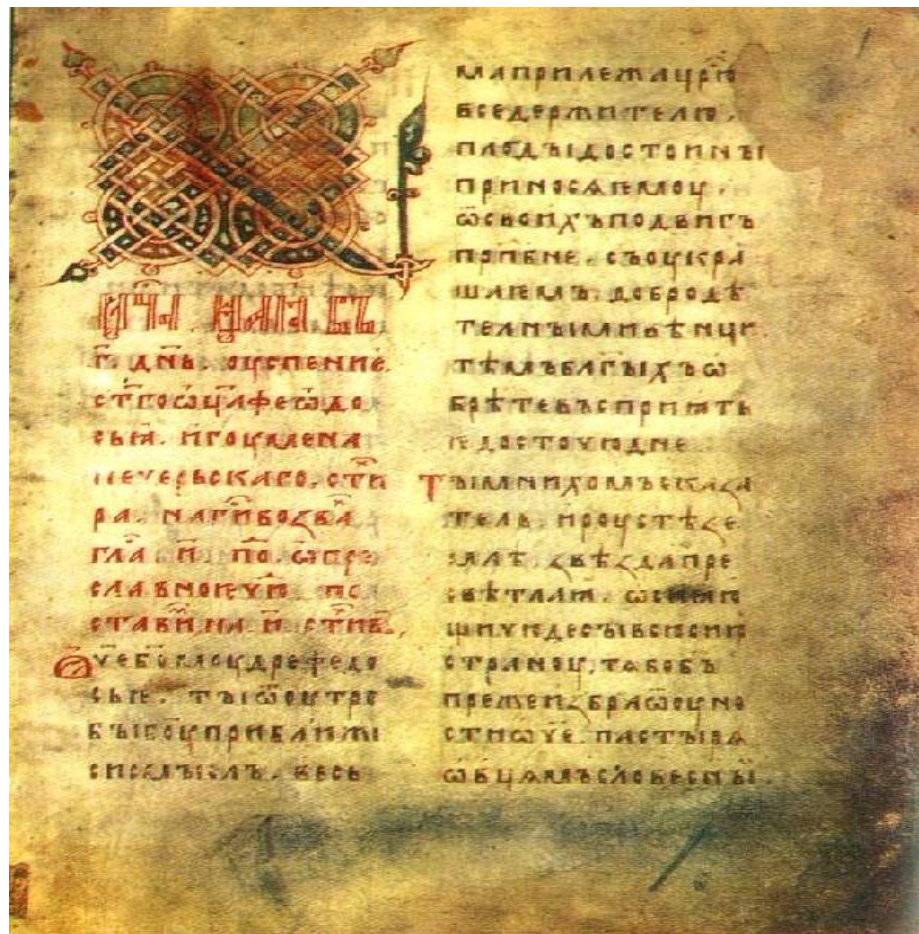 мⷭ҇ца маіа въ
г҃ днь оуспение
ст҃го ѡц҃а феѡдо
сьꙗ игоумена
печерьскаго сти
ра на г҃и възва
гла и҃ по ѡ пре
славное чю по
стави на и҃ стиⷯв
Ѡч҃е б҃омоудре федо
сье ты ѿ оутро
бы б҃оу приближи
си смысль весь
ма прилежа цр҃ю
вседержителю
плоды достоины
приносѧ ѥмоу
ѿ своихъ подвигъ
прп҃бне съ оукра
шаѥмъ добродѣ
телными вѣнци
тѣмъ бл҃гыхъ ѡ
брѣте въспріꙗть
ѥ достоуюдне
Ты мнихомъ сказа
тель и роустѣ зе
млѣ звѣзда пре
свѣтлаꙗ ѡсиꙗю
щи чюдесы всю сию
страноу тѧ бо б҃ъ
преже избра ѿ оуно
сти ѡч҃е пастырѧ
ѡвцѧмъ словесны